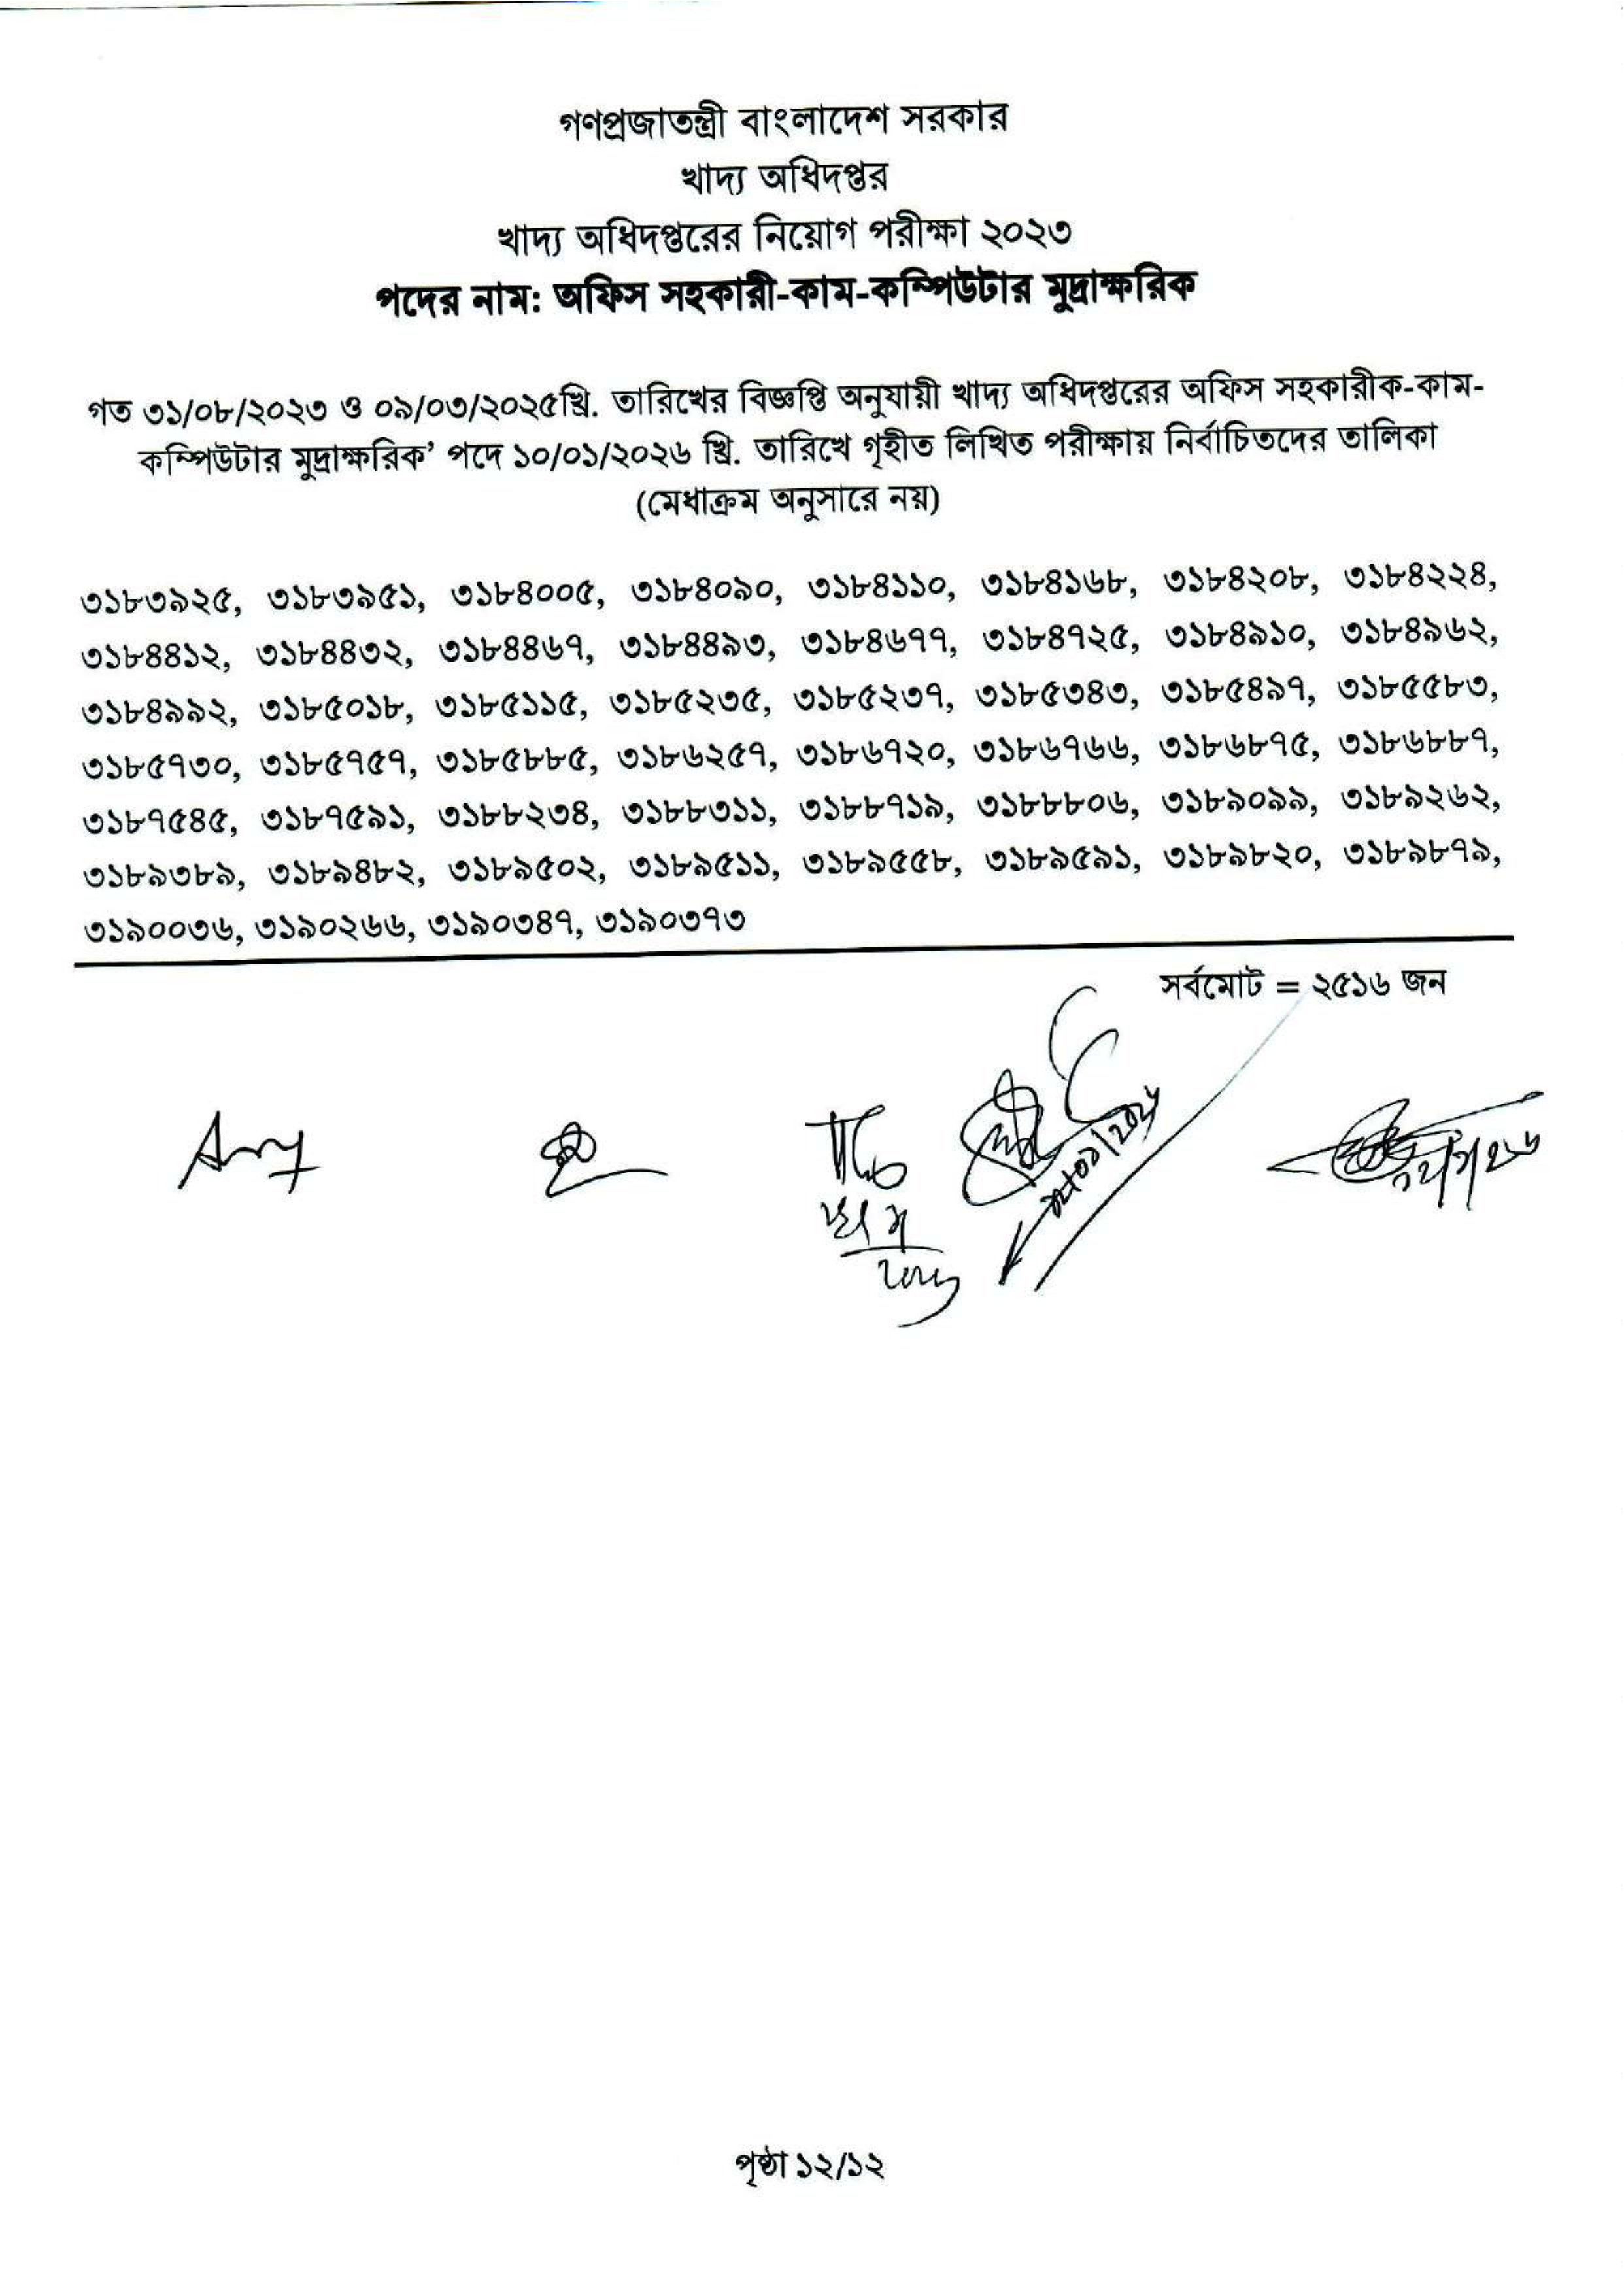 গণপ্রজাতন্ত্রী বাংলাদেশ সরকার
খাদ্য অধিদপ্তর
খাদ্য অধিদপ্তরের নিয়োগ পরীক্ষা ২০২৩
পদের নাম: অফিস সহকারী-কাম-কম্পিউটার মুদ্রাক্ষরিক
গত ৩১/০৮/২০২৩ ও ০৯/০৩/২০২৫খ্রি. তারিখের বিজ্ঞপ্তি অনুযায়ী খাদ্য অধিদপ্তরের অফিস সহকারীক-কাম-
কম্পিউটার মুদ্রাক্ষরিক’ পদে ১০/০১/২০২৬ খ্রি. তারিখে গৃহীত লিখিত পরীক্ষায় নির্বাচিতদের তালিকা
(মেধাক্রম অনুসারে নয়)
৩১৮৩৯২৫, ৩১৮৩৯৫১, ৩১৮৪০০৫, ৩১৮৪০৯০, ৩১৮৪১১০, ৩১৮৪১৬৮, ৩১৮৪২০৮, ৩১৮৪২২৪,
৩১৮৪৪১২, ৩১৮৪৪৩২, ৩১৮৪৪৬৭, ৩১৮৪৪৯৩, ৩১৮৪৬৭৭, ৩১৮৪৭২৫, ৩১৮৪৯১০, ৩১৮৪৯৬২,
৩১৮৪৯৯২, ৩১৮৫০১৮, ৩১৮৫১১৫, ৩১৮৫২৩৫, ৩১৮৫২৩৭, ৩১৮৫৩৪৩, ৩১৮৫৪৯৭, ৩১৮৫৫৮৩,
৩১৮৫৭৩০, ৩১৮৫৭৫৭, ৩১৮৫৮৮৫, ৩১৮৬২৫৭, ৩১৮৬৭২০, ৩১৮৬৭৬৬, ৩১৮৬৮৭৫, ৩১৮৬৮৮৭,
৩১৮৭৫৪৫, ৩১৮৭৫৯১, ৩১৮৮২৩৪, ৩১৮৮৩১১, ৩১৮৮৭১৯, ৩১৮৮৮০৬, ৩১৮৯০৯৯, ৩১৮৯২৬২,
৩১৮৯৩৮৯, ৩১৮৯৪৮২, ৩১৮৯৫০২, ৩১৮৯৫১১, ৩১৮৯৫৫৮, ৩১৮৯৫৯১, ৩১৮৯৮২০, ৩১৮৯৮৭৯,
৩১৯০০৩৬, ৩১৯০২৬৬, ৩১৯০৩৪৭, ৩১৯০৩৭৩
সর্বমোট = ২৫১৬ জন
পৃষ্ঠা ১২/১২